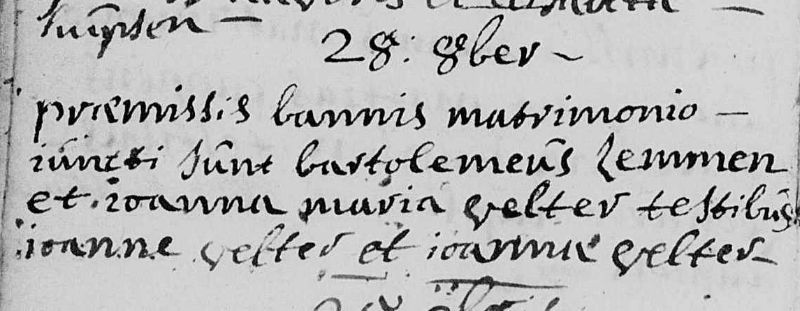 28: 8ber -
præmissis bannis matrimonio -
iúncti súnt bartolemeús Lemmen
et ioanna maria velter testibús
ioanne velter et ioanna velter